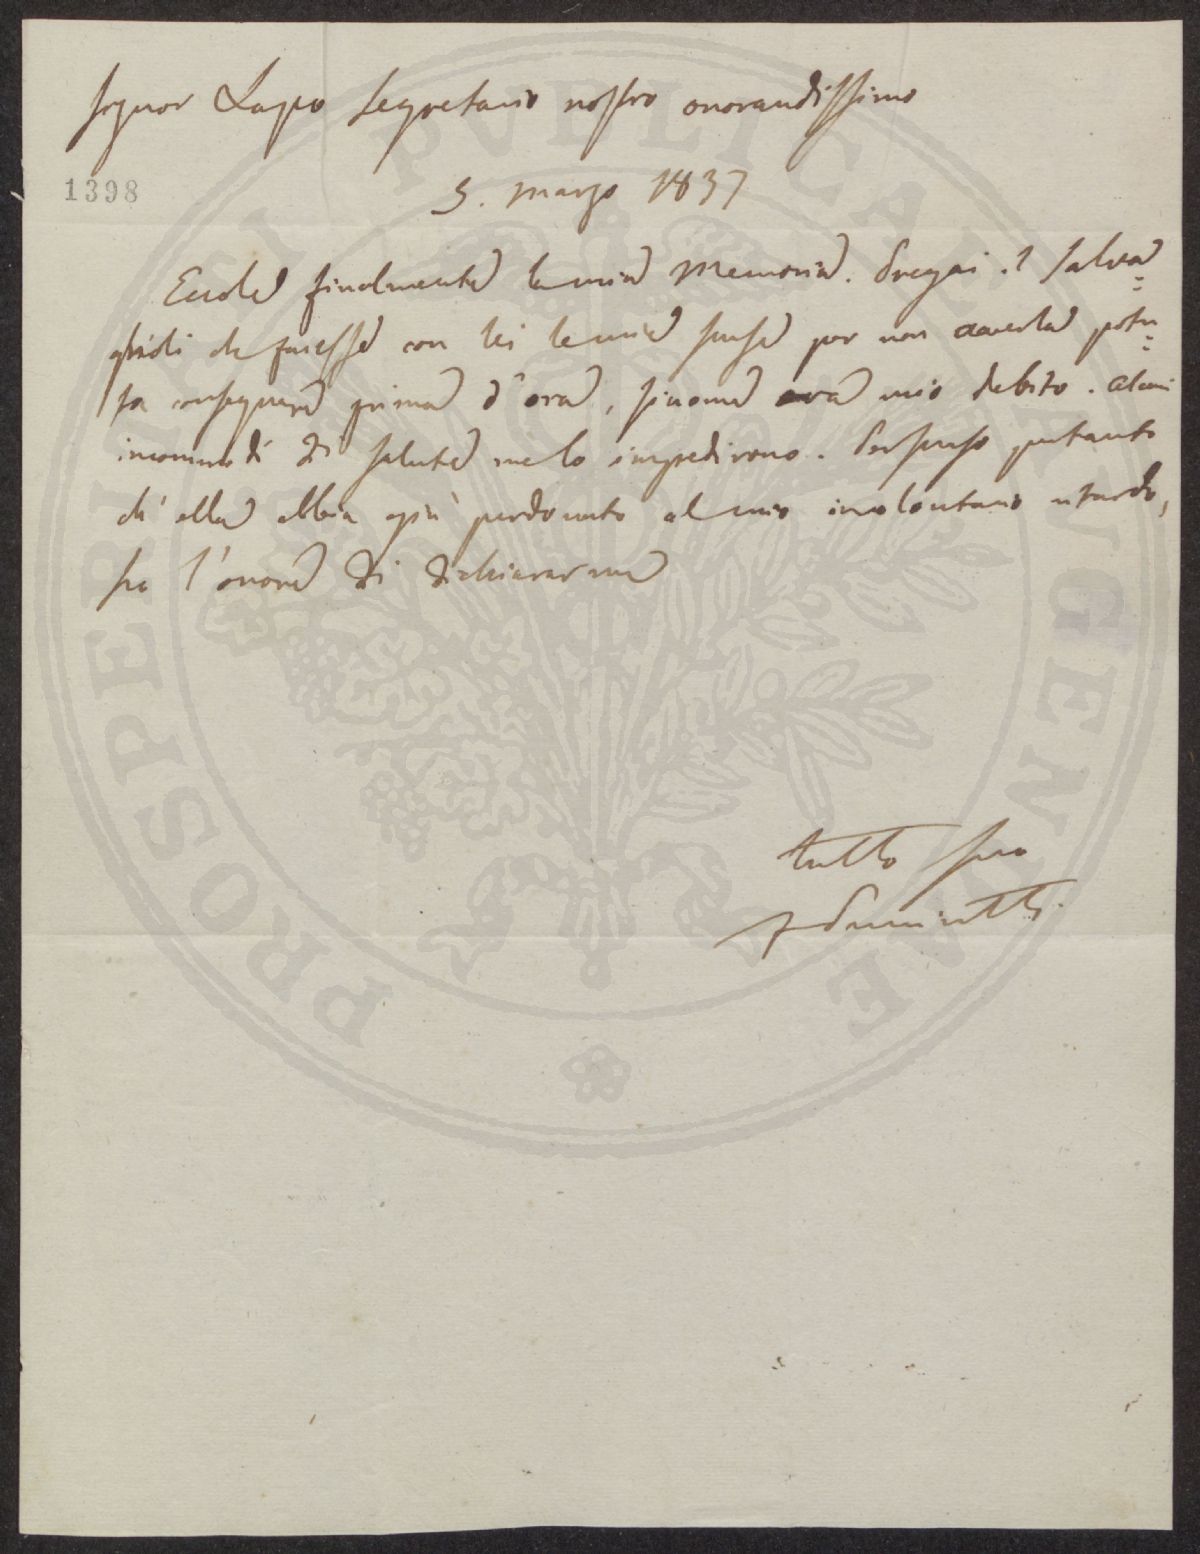 Signor Lapo Segretario nostro onorandissimo
1398
5. Marzo 1837
Eccole finalmente la mia Memoria. Pregai il Salva=
gnoli che facesse con lei le mie scuse per non avercela potu=
ta consegnare prima d'ora, siccome era mio debito. Alcuni
incommodi di salute me lo impedirono. Persuaso pertanto
ch'ella abbia già perdonato al mio involontario ritardo,
ho l'onore di dichiararme
tutto suo
PROSPERITATI PVBLICAE AVGENDAE